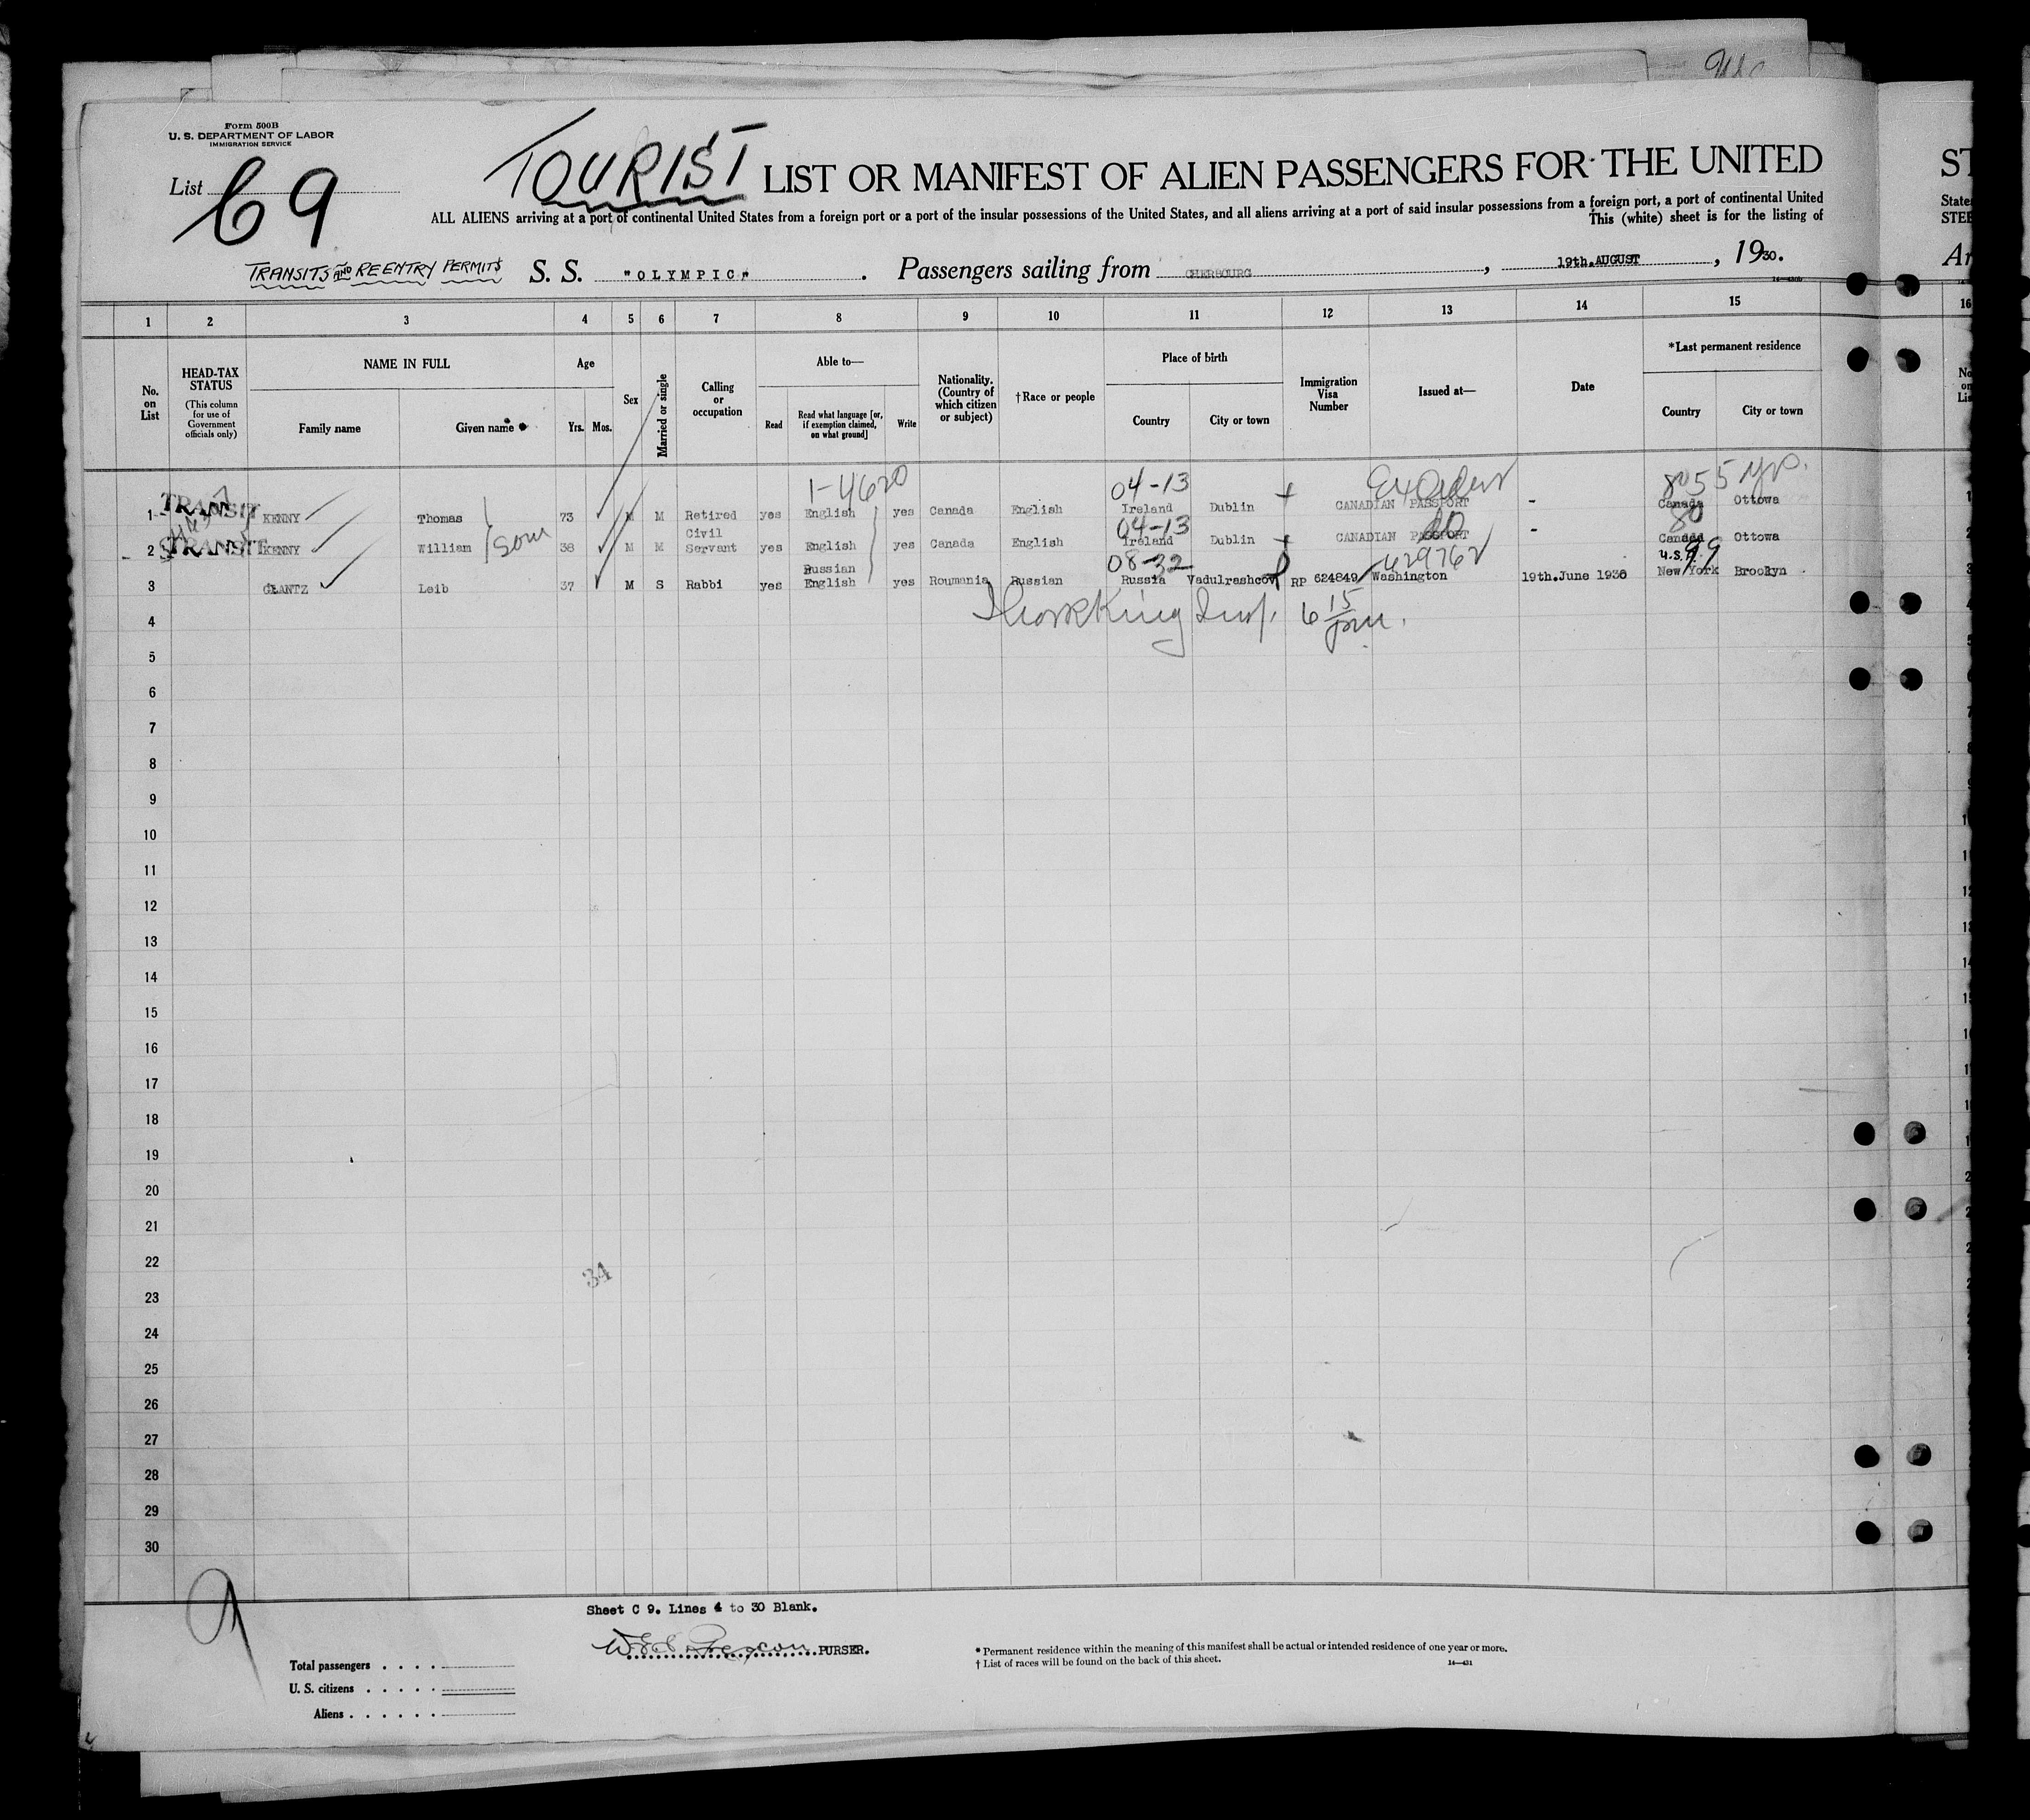 Form 500B
U. S. DEPARTMENT OF LABOR
IMMIGRATION SERVICE
List C 9
TOURIST LIST OR MANIFEST OF ALIEN PASSENGERS FOR THE UNITED
ALL ALIENS arriving at a port of continental United States from a foreign port or a port of the insular possessions of the United States, and all aliens arriving at a port of said insular possessions from a foreign port, a port of continental United
This (white) sheet is for the listing of
TRANSITS AND REENTRY PERMITS S. S. "OLYMPIC" . Passengers sailing from CHERBOURG , 19th.AUGUST , 1930.
1 2 3 4 5 6 7 8 9 10 11 12 13 14 15
No. on List
HEAD-TAX STATUS (This column for use of Government officials only)
NAME IN FULL
Family name Given name
Age
Yrs. Mos.
Sex
Married or single
Calling or occupation
Able to—
Read Read what language [or, if exemption claimed, on what ground] Write
Nationality. (Country of which citizen or subject)
†Race or people
Place of birth
Country City or town
Immigration Visa Number
Issued at—
Date
*Last permanent residence
Country City or town
1-4620 04-13 80 55 yrs.
1 TRANSIT KENNY Thomas 73 M M Retired yes English yes Canada English Ireland Dublin CANADIAN PASSPORT - Canada Ottowa
Civil 04-13 do 80
2 TRANSIT KENNY William son 38 M M Servant yes English yes Canada English Ireland Dublin CANADIAN PASSPORT - Canada Ottowa
Russian 08-32 429762 U.S. 99
3 GLANTZ Leib 37 M S Rabbi yes English yes Roumania Russian Russia Vadulrashcov RP 624849 Washington 19th.June 1930 New York Brooklyn
4 King Insp. 6 15 pm.
5
6
7
8
9
10
11
12
13
14
15
16
17
18
19
20
21
22
34
23
24
25
26
27
28
29
30
Sheet C 9. Lines 4 to 30 Blank.
PURSER.
Total passengers . . . .
U. S. citizens . . . . .
Aliens . . . . . .
* Permanent residence within the meaning of this manifest shall be actual or intended residence of one year or more.
† List of races will be found on the back of this sheet.
14—431